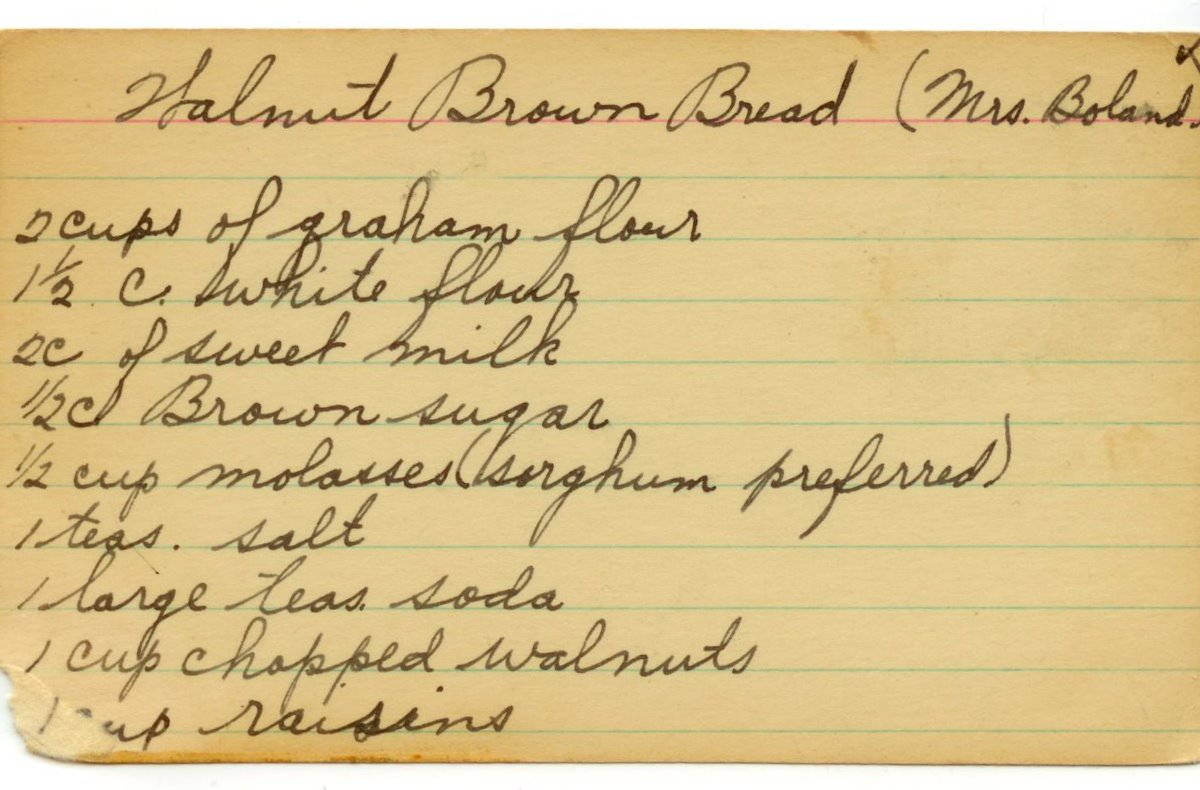 Walnut Brown Bread (Mrs. Boland.
2 cups of graham flour
1 1/2 c. white flour
2c of sweet milk
1/2c Brown sugar
1/2 cup molasses (sorghum preferred)
1 teas. salt
1 large teas. soda
1 cup chopped walnuts
1 cup raisins